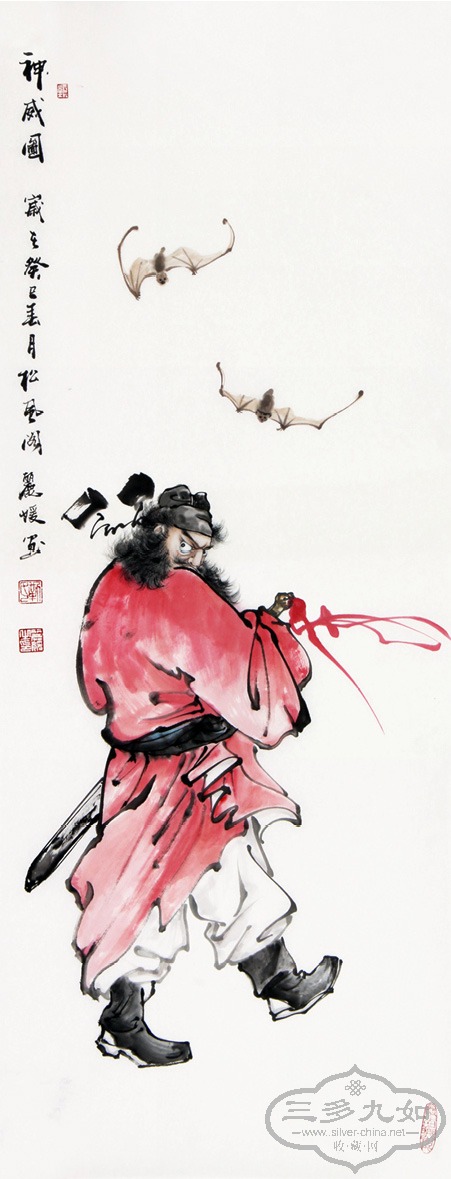 神威圖
歲之癸巳春月松風閣麗媛畫
三多九如
www.silver-china.net
收·藏·网